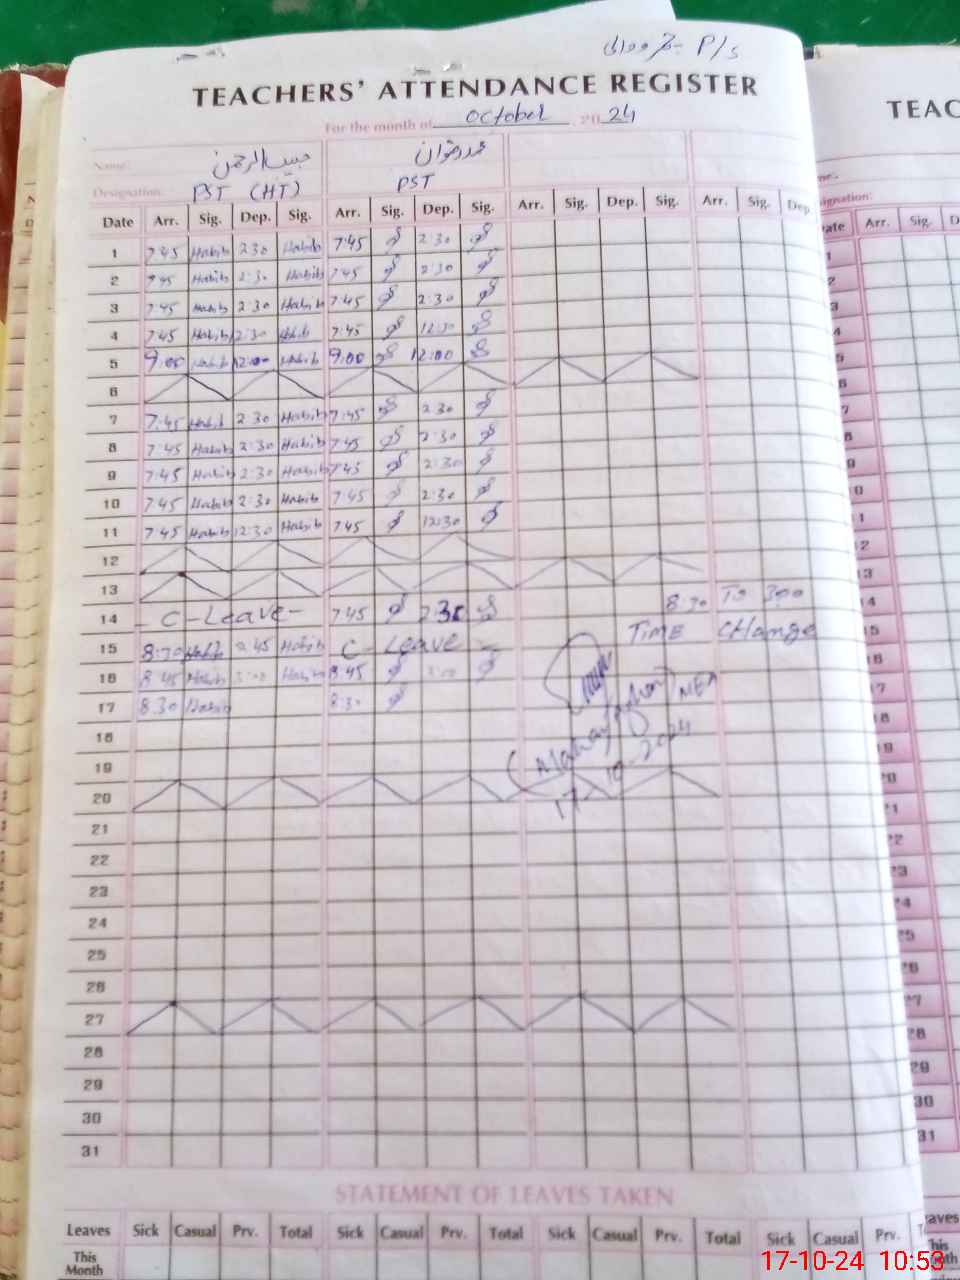 P/S
TEACHERS' ATTENDANCE REGISTER
For the month of October 2024
Name: حبیب الرحمن محمد رضوان
Designation: PST (HT) PST
Date Arr. Sig. Dep. Sig. Arr. Sig. Dep. Sig. Arr. Sig. Dep. Sig. Arr. Sig. Dep.
1 7:45 Habib 2:30 Habib 7:45 2:30
2 7:45 Habib 2:30 Habib 7:45 2:30
3 7:45 Habib 2:30 Habib 7:45 2:30
4 7:45 Habib 12:30 Habib 7:45 12:30
5 9:00 Habib 12:00 Habib 9:00 12:00
6
7 7:45 Habib 2:30 Habib 7:45 2:30
8 7:45 Habib 2:30 Habib 7:45 2:30
9 7:45 Habib 2:30 Habib 7:45 2:30
10 7:45 Habib 2:30 Habib 7:45 2:30
11 7:45 Habib 12:30 Habib 7:45 12:30
12
13
14 - C-Leave - 7:45 2:30 8:30 To 3:00
15 8:30 Habib 2:45 Habib C-Leave - TIME Change
16 8:45 Habib 3:00 Habib 8:45 3:00
17 8:30 Habib 8:30
MEA
17-10-2024
18
19
20
21
22
23
24
25
26
27
28
29
30
31
STATEMENT OF LEAVES TAKEN
Leaves Sick Casual Prv. Total Sick Casual Prv. Total Sick Casual Prv. Total Sick Casual Prv.
This Month
17-10-24 10:53